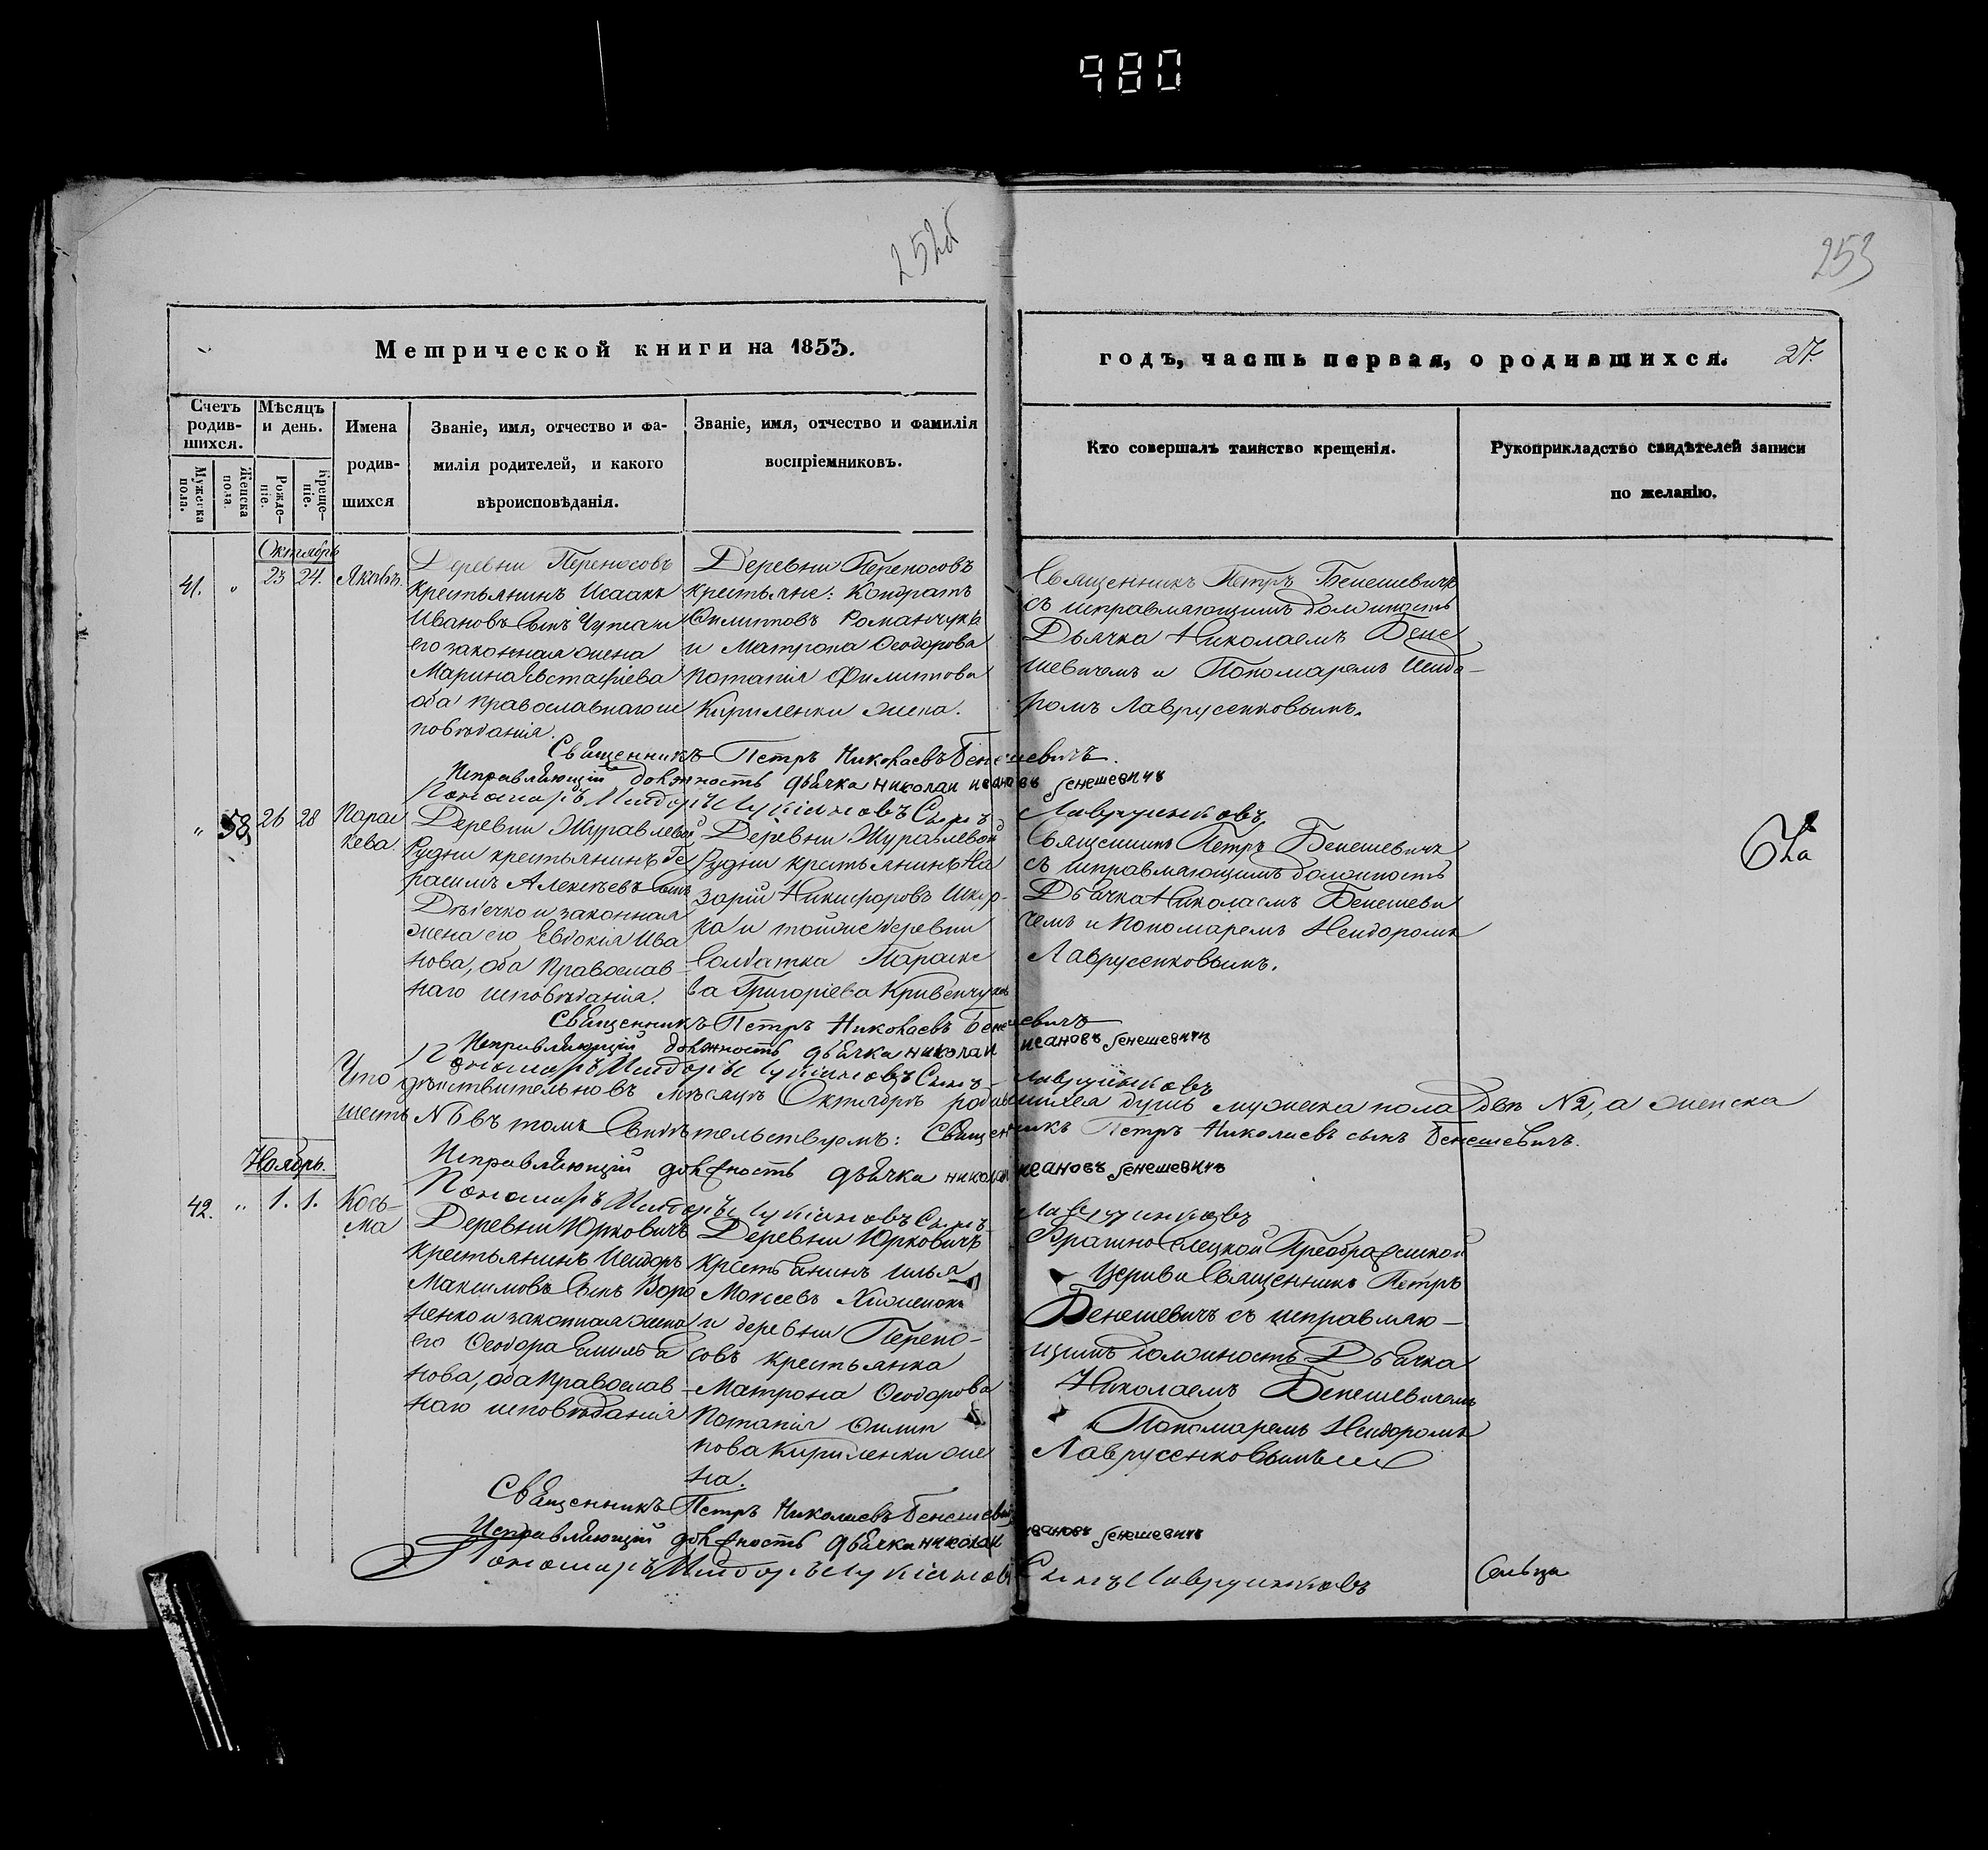 980
252об
253
Метрической книги на 1853.
годъ, часть первая, о родившихся. 27.
Счетъ родив-шихся.
Мужеска пола.
Женска пола.
Мѣсяцъ и день.
Рожде-ніе.
Креще-ніе.
Имена
родив-
шихся
Званіе, имя, отчество и фа-
милія родителей, и какого
вѣроисповѣданія.
Званіе, имя, отчество и фамилія
воспріемниковъ.
Кто совершалъ таинство крещенія.
Рукоприкладство свидѣтелей записи
по желанію.
Октябрь
41. " 23 24. Яковъ.
Деревни Переносовъ
крестьянинъ Исаакъ
Ивановъ сынъ
его законная жена
Марина Евстафіева
оба православнаго ис
повѣданія.
Деревни Переносовъ
крестьяне: Кондратъ
Филиповъ Романчукъ
и Матрона Ѳеодорова
Потапія Филипова
Кириленки жена.
Священникъ Петръ Бенешевичъ
съ исправляющимъ должность
Дьячка Николаемъ Бене
шевичемъ и Пономаремъ Исидо-
ромъ Лаврусенковымъ.
Священникъ Петръ Николаевъ Бенешевичъ.
Исправляющій должность дьячка николай ивановъ бенешевичъ
Пономаръ Исидоръ Лукіановъ Сынъ Лаврусенковъ
" 58, 26 28 Парас
кева.
Деревни Журавлевой
Рудни крестьянинъ Ге
расимъ Алексѣевъ сынъ
и законная
жена его Евдокія Ива
нова, оба Православ-
наго исповѣданія.
Деревни Журавлевой
Рудни крестьянинъ На
зарій Никифоровъ Шкур-
ка и тойже деревни
Солдатка Параске
ва Григоріева
Священникъ Петръ Бенешевичъ
съ исправляющимъ должность
Дьячка Николаемъ Бенешеви
чемъ и Пономаремъ Исидоромъ
Лаврусенковымъ.
Священникъ Петръ Николаевъ Бенешевичъ
Исправляющій должность дьячка николай ивановъ бенешевичъ
Пономаръ Исидоръ Лукіановъ Сынъ Лаврусенковъ
Что дѣйствительно въ мѣсяцѣ Октябрѣ родившихся душъ мужеска пола двѣ №2, а женска
шесть №6 въ томъ свидѣтельствуемъ: Священникъ Петръ Николаевъ сынъ Бенешевичъ.
Исправляющій должность дьячка николай ивановъ бенешевичъ
Пономаръ Исидоръ Лукіановъ Сынъ Лаврусенковъ
Ноябрь.
42. " 1. 1. Кось-
ма
Деревни Юрковичъ
крестьянинъ Исидоръ
Максимовъ сынъ Воро
ненко и законная жена
его Ѳеодора Емилья
нова, оба православ-
наго исповѣданія
Деревни Юрковичъ
крестьянинъ Илья
Моисеевъ
и деревни Перено-
совъ крестьянка
Матрона Ѳеодорова
Потапія Филип
пова Кириленки же
на.
Преображенской
Церкви Священникъ Петръ
Бенешевичъ съ исправляю-
щимъ должность Дьячка
Николаемъ Бенешевичемъ
и Пономаремъ Исидоромъ
Лаврусенковымъ
Священникъ Петръ Николаевъ Бенешевичъ
Исправляющій должность дьячка николай ивановъ бенешевичъ
Пономаръ Исидоръ Лукіановъ Сынъ Лаврусенковъ